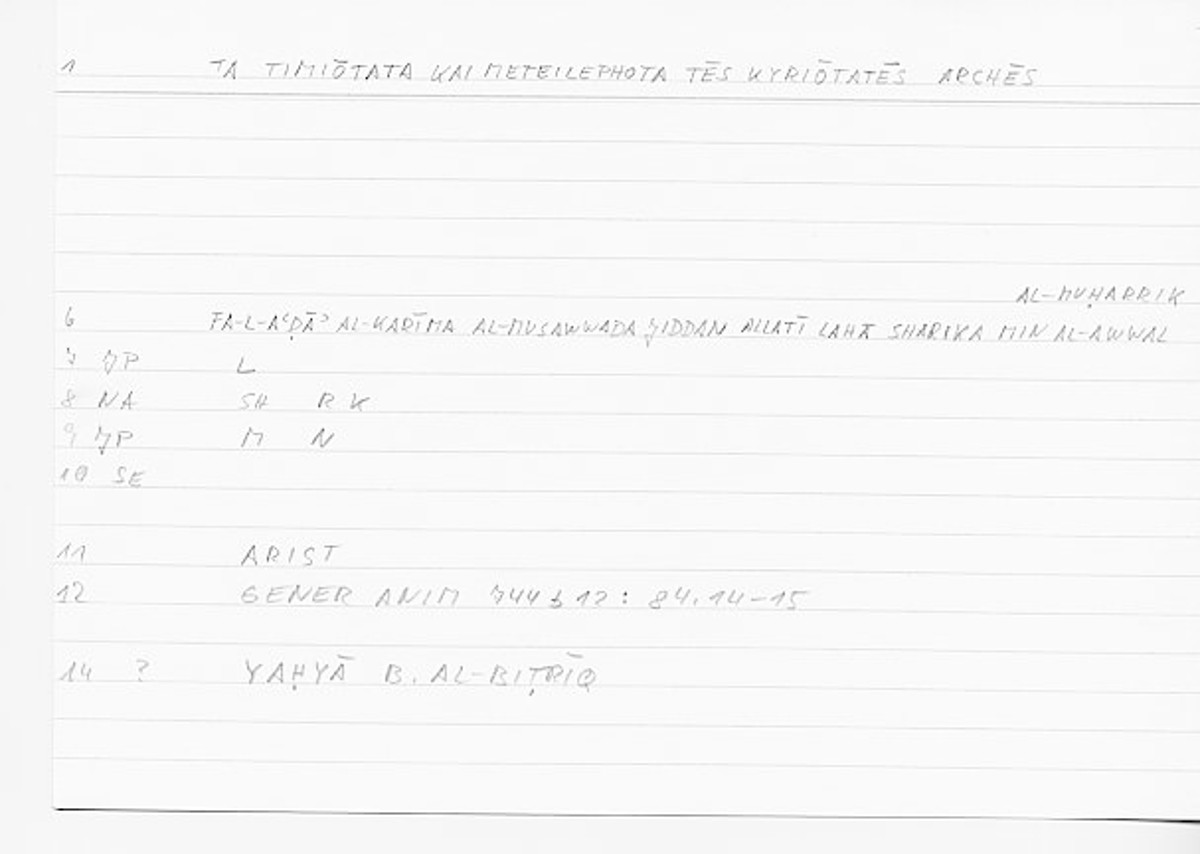 1 TA TIMIŌTATA KAI METEILEPHOTA TĒS KYRIŌTATĒS ARCHĒS
AL-MUḤARRIK
6 FA-L-AʿḌĀʾ AL-KARĪMA AL-MUSAWWADA JIDDAN ALLATĪ LAHĀ SHARIKA MIN AL-AWWAL
7 JP L
8 NA SH R K
9 JP M N
10 SE
11 ARIST
12 GENER ANIM 744 b 12 : 84.14-15
14 ? YAḤYĀ B. AL-BIṬRĪQ